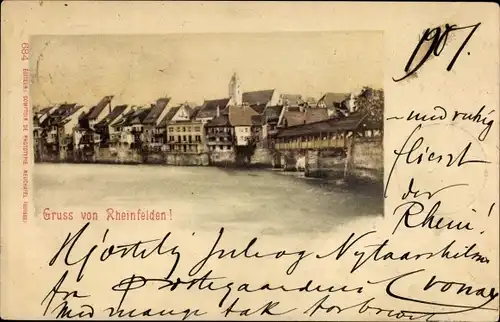 684 EDITEUR: COMPTOIR DE PHOTOTYPIE, NEUCHATEL (SUISSE)
Gruss von Rheinfelden!
1907.
- und ruhig
fliesst
der
Rhein!
Hjertelig Jule og Nytaarshilsen
fra
Med mange tak for